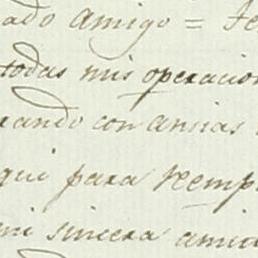 ado Amigo = Te
todas mis operacion
rando con ansias
qui para reemp
mi sincera amis